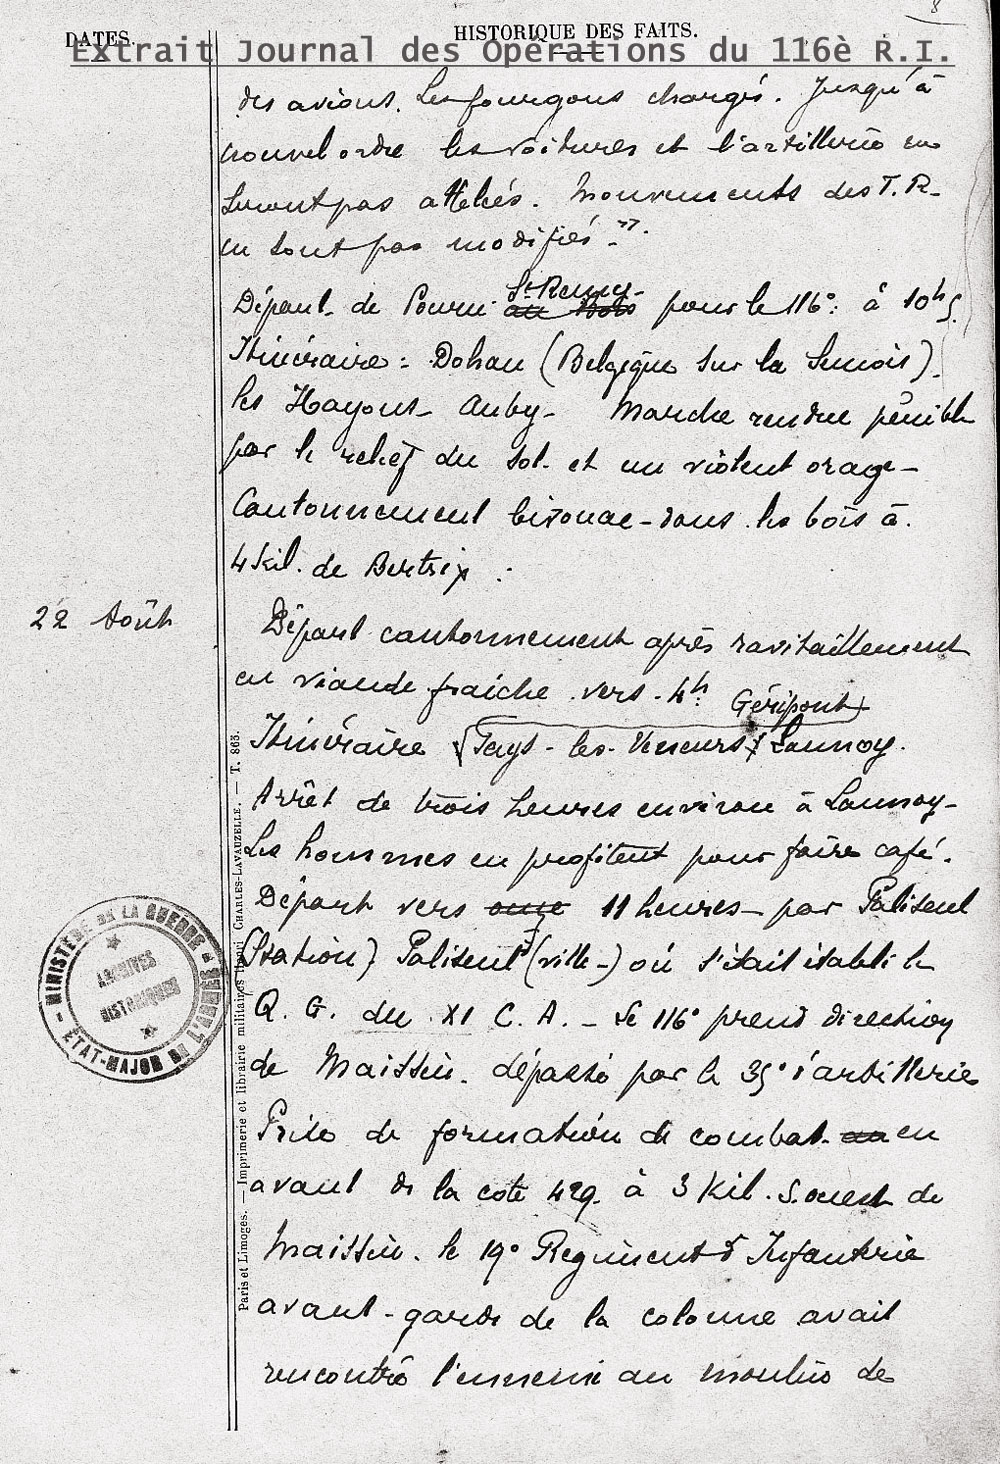 8
DATES.
HISTORIQUE DES FAITS.
Extrait Journal des Opérations du 116è R.I.
des avions. Les fourgons chargés. Jusqu'à
nouvel ordre les voitures et l'artillerie ne
seront pas attelés. Mouvements des T. R.
ne sont pas modifiés."
St Remy-
Départ de Pourru au Bois pour le 116e: à 10h5.
Itinéraire: Dohan (Belgique sur la Semois).
les Hayons- Auby- Marche rendue pénible
par le relief du sol. et un violent orage-
Cantonnement bivouac-dans les bois à
4 Kil. de Bertrix:
22 Août
Départ cantonnement après ravitaillement
en viande fraîche vers 4h
Géripont
Itinéraire (Fays-les-Veneurs) Launoy.
Arrêt de trois heures environ à Launoy-
Les hommes en profitent pour faire café.
Départ vers onze 11 heures- par Paliseul
(Station) Paliseul (ville-) où s'était établi le
Q. G. du XI C. A. - Le 116e prend direction
de Maissin. dépassé par le 35e d'artillerie
Prise de formation de combat. au en
avant de la cote 429. à 3 Kil. S. ouest de
Maissin. le 19e Régiment d'Infanterie
avant-garde de la colonne avait
rencontré l'ennemi au moulin de
MINISTÈRE DE LA GUERRE
ÉTAT-MAJOR DE L'ARMÉE
ARCHIVES
HISTORIQUES
Paris et Limoges. — Imprimerie et librairie militaires Henri CHARLES-LAVAUZELLE. — T. 863.